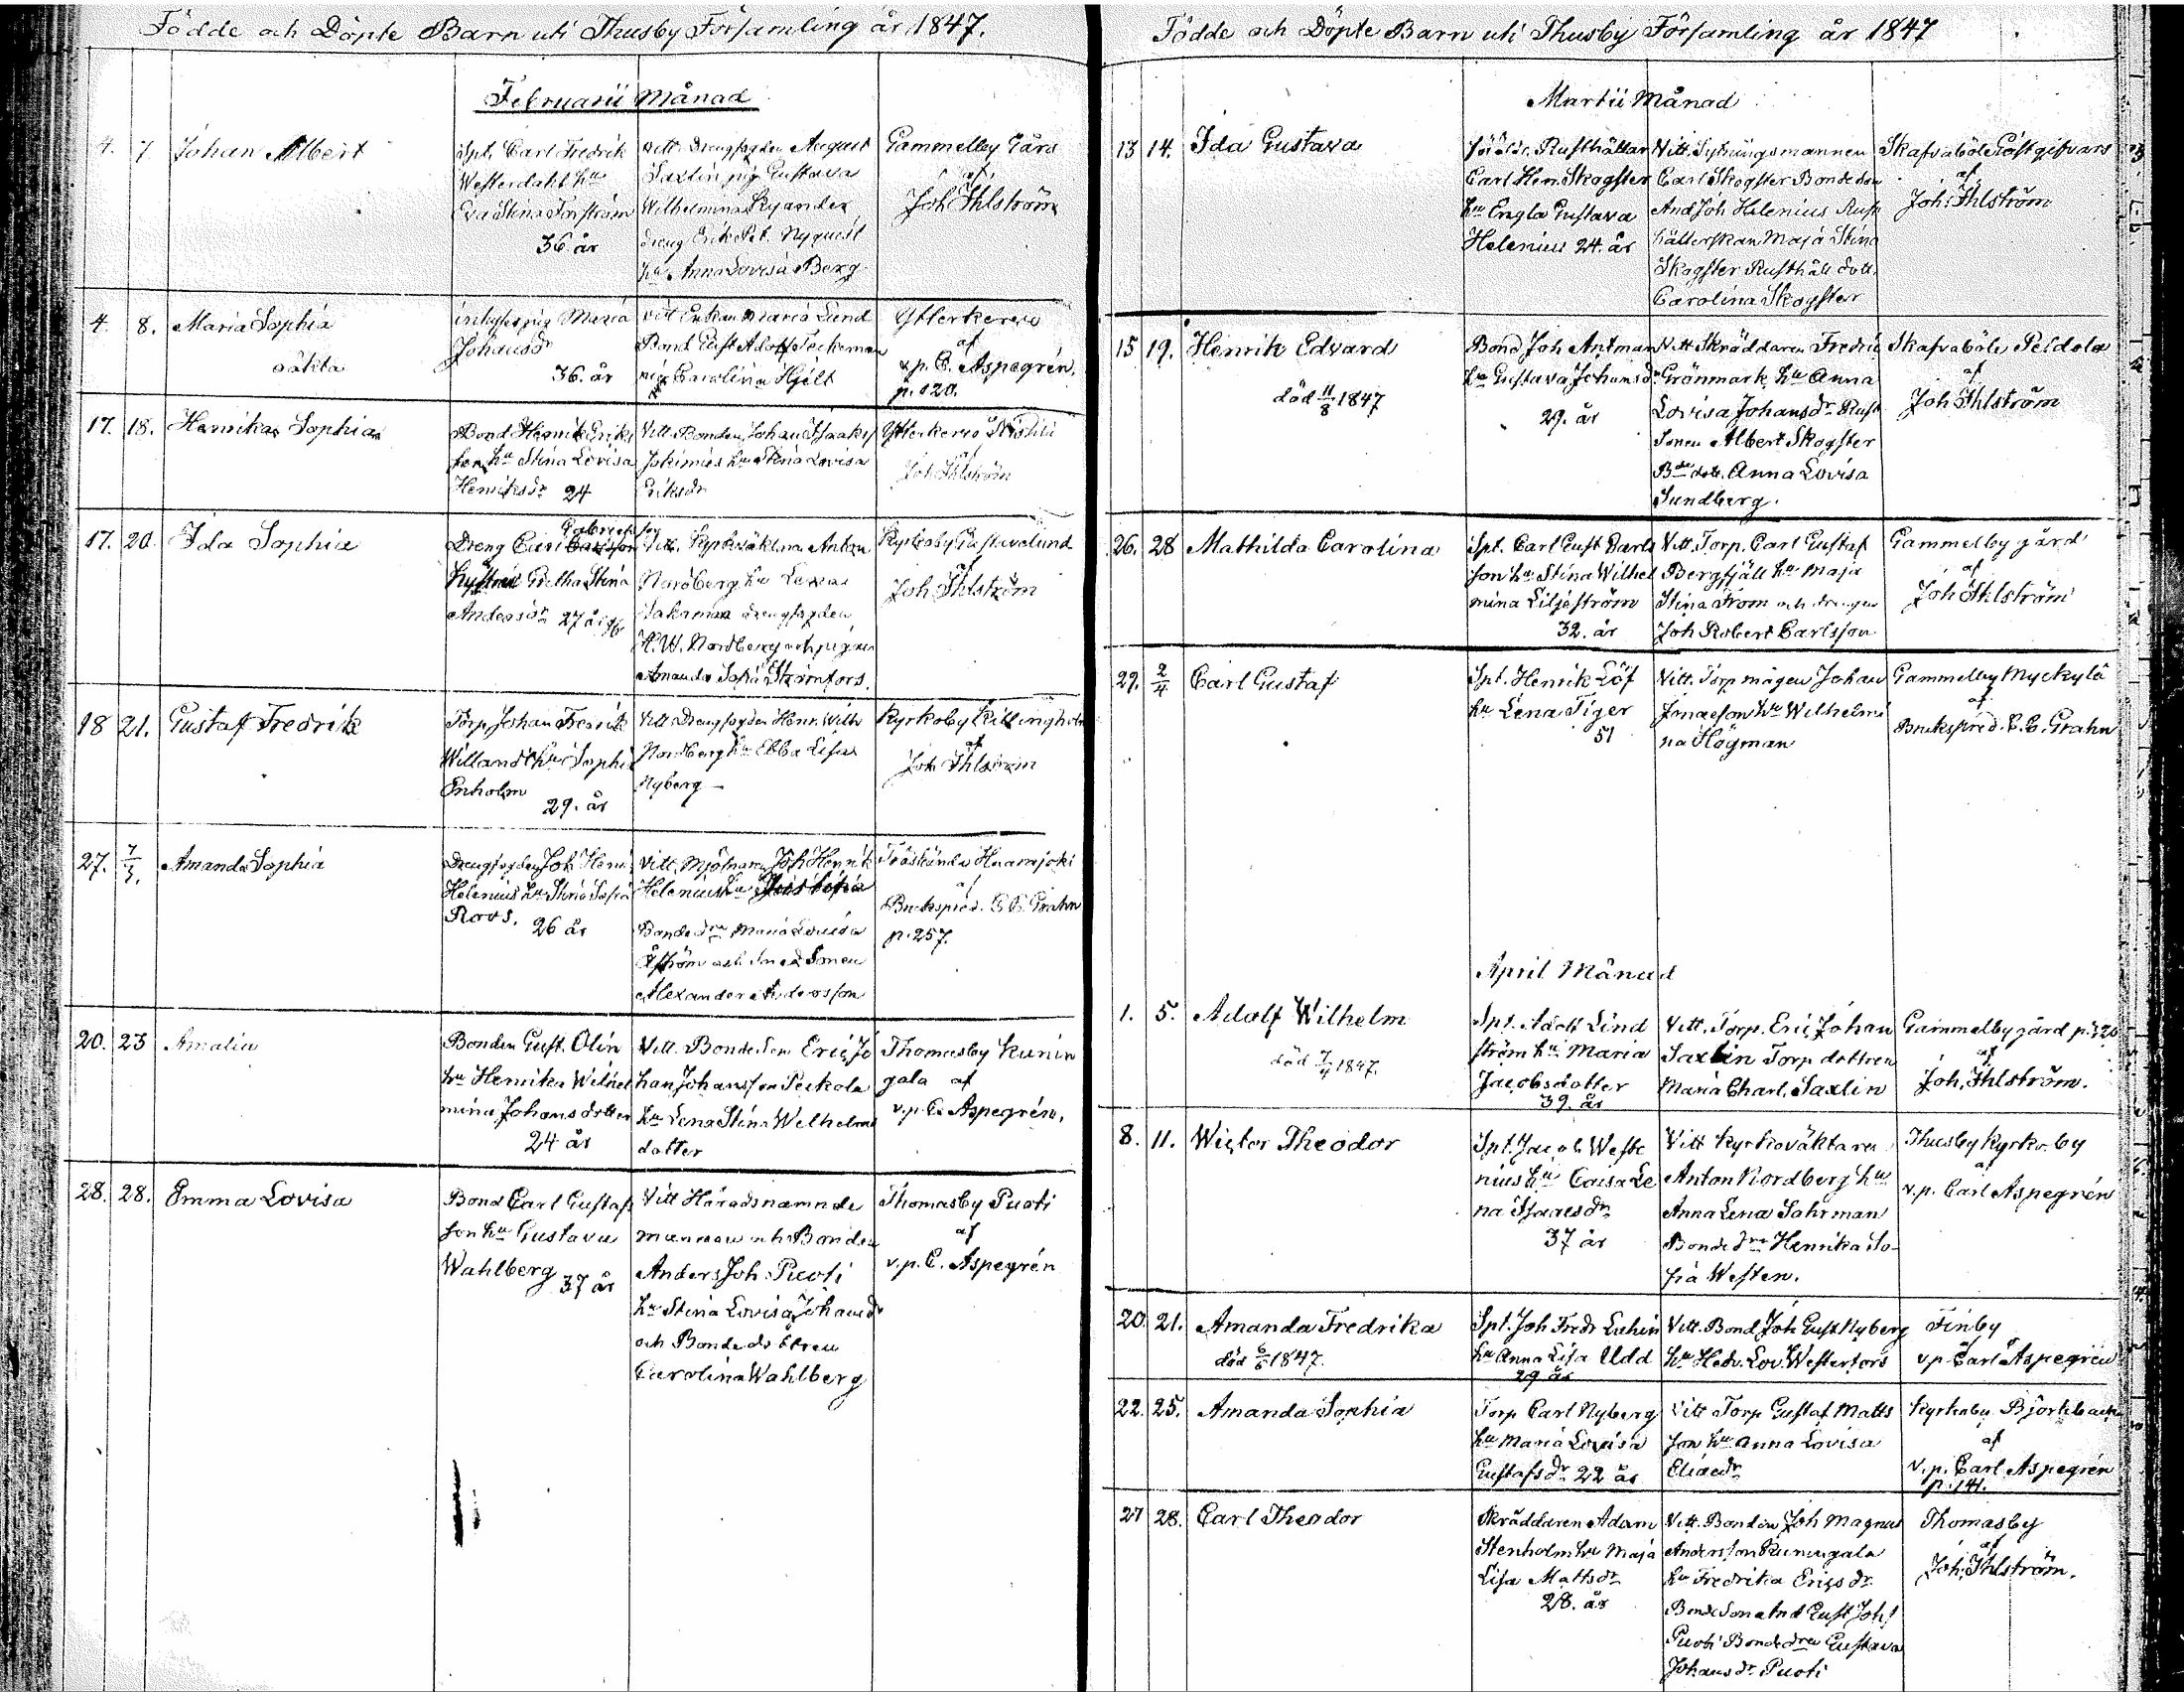 Födde och Döpte Barn uti Thusby Församling år 1847.
Februarii Månad
4. 7. Johan Albert
Spt. Carl Fredrik
Westerdahl hu
Eva Stina Forström
36. år
Vitt. Drengfogden August
Saxlin pig Gustava
Wilhelmina Kyander
dreng Erik Pet. Nyquist
hu. Anna Lovisa Berg
Gammelby Gård
af
Joh Ihlström
4. 8. Maria Sophia
oäkta
inhyses pig Maria
Johansdr
36. år
Vitt Enkan Maria Lund
Bond Gust Adolf Teckeman
pig Carolina Hjelt
Ytterkervo
af
v.p. C. Aspegrén.
p. 120.
17. 18. Henrika Sophia
Bond Henrik Eriks
son hu Stina Lovisa
Henriksdr 24
Vitt. Bonden Johan Isaaks
Jokimies hu Stina Lovisa
Eriksdr
Ytterkervo Nissilä
af
Joh Ihlström
17. 20. Ida Sophia
Gabrielsson
Dreng Carl
hustru Gretha Stina
Andersdr 27 år
Vitt. Kyrkväktaren Anton
Nordberg hu Lena
Sahrman drengfogden
H. W. Nordberg och pigan
Amanda Sofia Strömfors.
Kyrkoby Gustavelund
af
Joh Ihlström
18 21. Gustaf Fredrik
Torp. Johan Fredrik
Willandt hu Sophia
Enholm
29. år
Vitt Drengfogden Henr. Wilh
Nordberg hu Ebba Lisa
Nyberg
Kyrkoby Killingholm
af
Joh Ihlström
27. 7/3. Amanda Sophia
Drengfogden Joh Henr
Helenius hu Stina Sofia
Roos. 26 år
Vitt. Mjölnaren Joh Henrik
Helenius hu
Bondedrn Maria Lovisa
Åström och Smed Sonen
Alexander Andersson
Träskända Haarajoki
af
Brukspred. C. C. Grahn
p. 257.
20. 23 Amalia
Bonden Gust. Olin
hu Henrika Wilhel
mina Johansdotter
24 år
Vitt. Bondeson Eric Jo
han Johansson Peckola
hu Lena Stina Wilhelms
dotter
Thomasby Kunin
gala af
v.p. C. Aspegrén.
28. 28. Emma Lovisa
Bond Carl Gustafs
son hu Gustava
Wahlberg 37 år
Vitt Häradsnämnde
mannen och Bonden
Anders Joh. Puoti
hu Stina Lovisa Johansdr
och Bondedottren
Carolina Wahlberg
Thomasby Puoti
af
v.p. C. Aspegrén
Födde och Döpte Barn uti Thusby Församling år 1847
Martii Månad
13 14. Ida Gustava
Rusthållar
Carl Hen. Skogster
hu Engla Gustava
Helenius 24. år
Vitt. Sytningsmannen
Carl Skogster Bondeson
And Joh Helenius Rust
hållerskan Maja Stina
Skogster Rusthåll dott.
Carolina Skogster
Skafvaböle Gästgifvars
af
Joh. Ihlström
15 19. Henrik Edvard
död 11/8 1847
Bond Joh Antman
hu Gustava Johansdr
29. år
Vitt Skräddaren Fredric
Grönmark hu Anna
Lovisa Johansdr Rust
Sonen Albert Skogster
Bde dott. Anna Lovisa
Sundberg.
Skafvaböle Peldola
af
Joh Ihlström
26. 28 Mathilda Carolina
Spt. Carl Gust Carls
son hu Stina Wilhel
mina Liljeström
32. år
Vitt. Torp. Carl Gustaf
Bergfjäll hu Maja
Stina From och drengen
Joh Robert Carlsson
Gammelby gård
af
Joh Ihlström
29. 2/4 Carl Gustaf
Spt. Henrik Löf
hu Lena Tiger
51
Vitt. Torp mågen Johan
Jonaeson hu Wilhelmi
na Högman
Gammelby Myckylä
af
Brukspred. C. C. Grahn
April Månad
1. 5. Adolf Wilhelm
död 7/4 1847.
Spt. Adolf Lind
ström hu Maria
Jacobsdotter
39. år
Vitt. Torp. Eric Johan
Saxlin Torp dottren
Maria Charl. Saxlin
Gammelby gård
af
Joh. Ihlström.
8. 11. Wictor Theodor
Spt. Jacob Weste
nius hu Caisa Le
na Isaacsdr
37 år
Vitt Kyrkoväktaren
Anton Nordberg hu
Anna Lena Sahrman
Bonde drn Henrika So-
fia Westen.
Thusby Kyrkoby
af
v.p. Carl Aspegrén
20. 21. Amanda Fredrika
död 6/6 1847.
Spt. Joh Fredr Luhin
hu Anna Lisa Udd
29 år
Vitt. Bond Joh Gust Nyberg
hu Hedv. Lov. Westerfors
Finby
af
v.p. Carl Aspegrén
22. 25. Amanda Sophia
Torp Carl Nyberg
hu Maria Lovisa
Gustafsdr 22 år
Vitt Torp Gustaf Matts
son hu Anna Lovisa
Eliaedr
Kyrkoby Björkbacka
af
v.p. Carl Aspegrén
p. 141.
27 28. Carl Theodor
Skräddaren Adam
Stenholm hu Maja
Lisa Mattsdr
28. år
Vitt. Bonden Joh Magnus
Andersson Kuningala
hu Fredrika Ericsdr
Bonde Son And Gust Joh
Puoti Bonde drn Gustava
Johansdr Puoti
Thomasby
af
Joh. Ihlström.